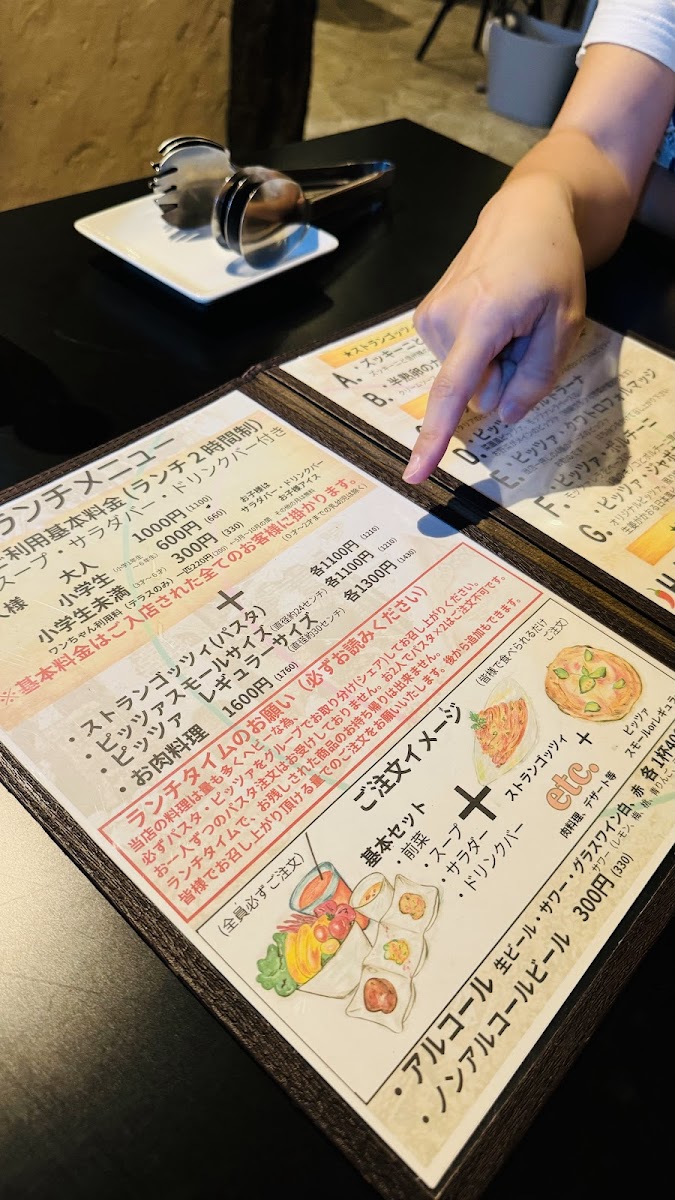 ランチメニュー
ご利用基本料金(ランチ2時間制)
スープ・サラダバー・ドリンクバー付き
大人 1000円(1100)
小学生 600円(660)
小学生未満 300円(330)
お子様は
サラダバー・ドリンクバー
お子様アイス
※基本料金はご入店された全てのお客様に掛かります。
+
・ストランゴッツィ(パスタ) 各1100円(1210)
・ピッツァスモールサイズ(直径約24センチ) 各1100円(1210)
・ピッツァ レギュラーサイズ(直径約30センチ) 各1300円(1430)
・お肉料理 1600円(1760)
ランチタイムのお願い(必ずお読みください)
当店の料理は量も多くヘビーな為、
必ずパスタ・ピッツァをグループでお取り分け(シェア)してお召し上がりください。
お一人ずつのパスタ注文はお受けしておりません。お2人でパスタ×2はご注文不可です。
ランチタイムで、お残しされた商品のお持ち帰りは出来ません。
皆様でお召し上がり頂ける量でのご注文をお願いいたします。後から追加もできます。
ご注文イメージ
(全員必ずご注文)
基本セット
・前菜
・スープ
・サラダー
・ドリンクバー
+
(皆様で食べられるだけ
ご注文)
ストランゴッツィ
+
ピッツァ
スモールorレギュラ
etc.
肉料理、デザート等
・アルコール 生ビール・サワー・グラスワイン白、赤 各1杯40
・ノンアルコールビール 300円(330)
★ストランゴッツィ
A.・ズッキーニと
B.・半熟卵の
D.・ピッツァ
E.・ピッツァ・クワトロフォルマッジ
F.・ピッツァ・ボルチーニ
G.・ピッツァ・ジャポ